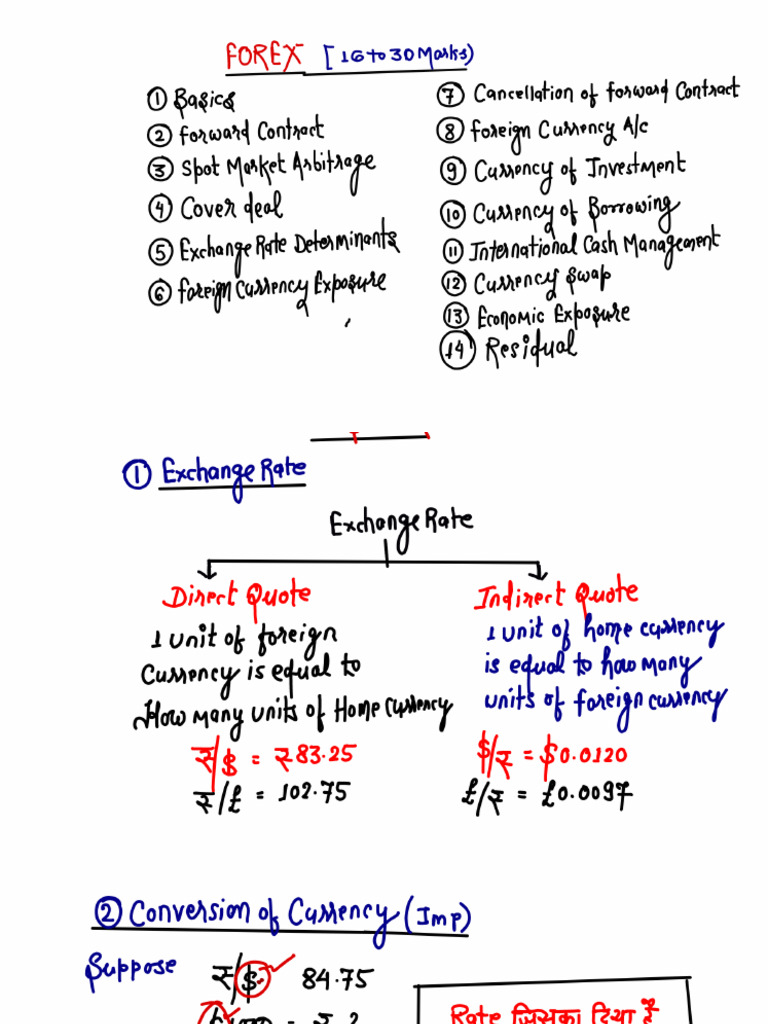 FOREX [16 to 30 Marks)
① Basics
② Forward Contract
③ Spot Market Arbitrage
④ Cover deal
⑤ Exchange Rate Determinants
⑥ Foreign Currency Exposure
⑦ Cancellation of Forward Contract
⑧ Foreign Currency A/c
⑨ Currency of Investment
⑩ Currency of Borrowing
⑪ International Cash Management
⑫ Currency Swap
⑬ Economic Exposure
⑭ Residual
① Exchange Rate
Exchange Rate
Direct Quote
1 unit of foreign
Currency is equal to
How many units of Home Currency
₹/$ = ₹83.25
₹/£ = 102.75
Indirect Quote
1 unit of home currency
is equal to how many
units of foreign currency
$/₹ = $0.0120
£/₹ = £0.0097
② Conversion of Currency (Imp)
Suppose ₹/$ = 84.75
= ₹ ?
Rate जिसका दिया है